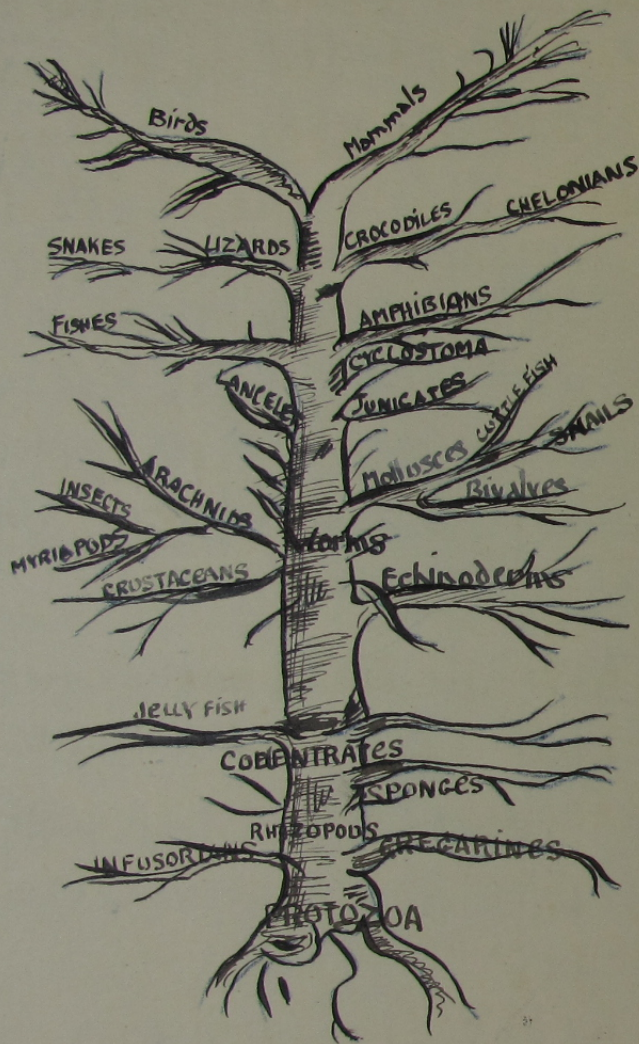 Birds
Mammals
SNAKES
LIZARDS
CROCODILES
CHELONIANS
FISHES
AMPHIBIANS
CYCLOSTOMA
LANCELET
JUNICATES
CUTTLE FISH
SNAILS
Molluscs
Bivalves
ARACHNIDS
INSECTS
MYRIAPODS
Worms
CRUSTACEANS
Echinoderms
Jelly FISH
COELENTRATES
SPONGES
RHIZOPODS
INFUSORIANS
GREGARINES
PROTOZOA